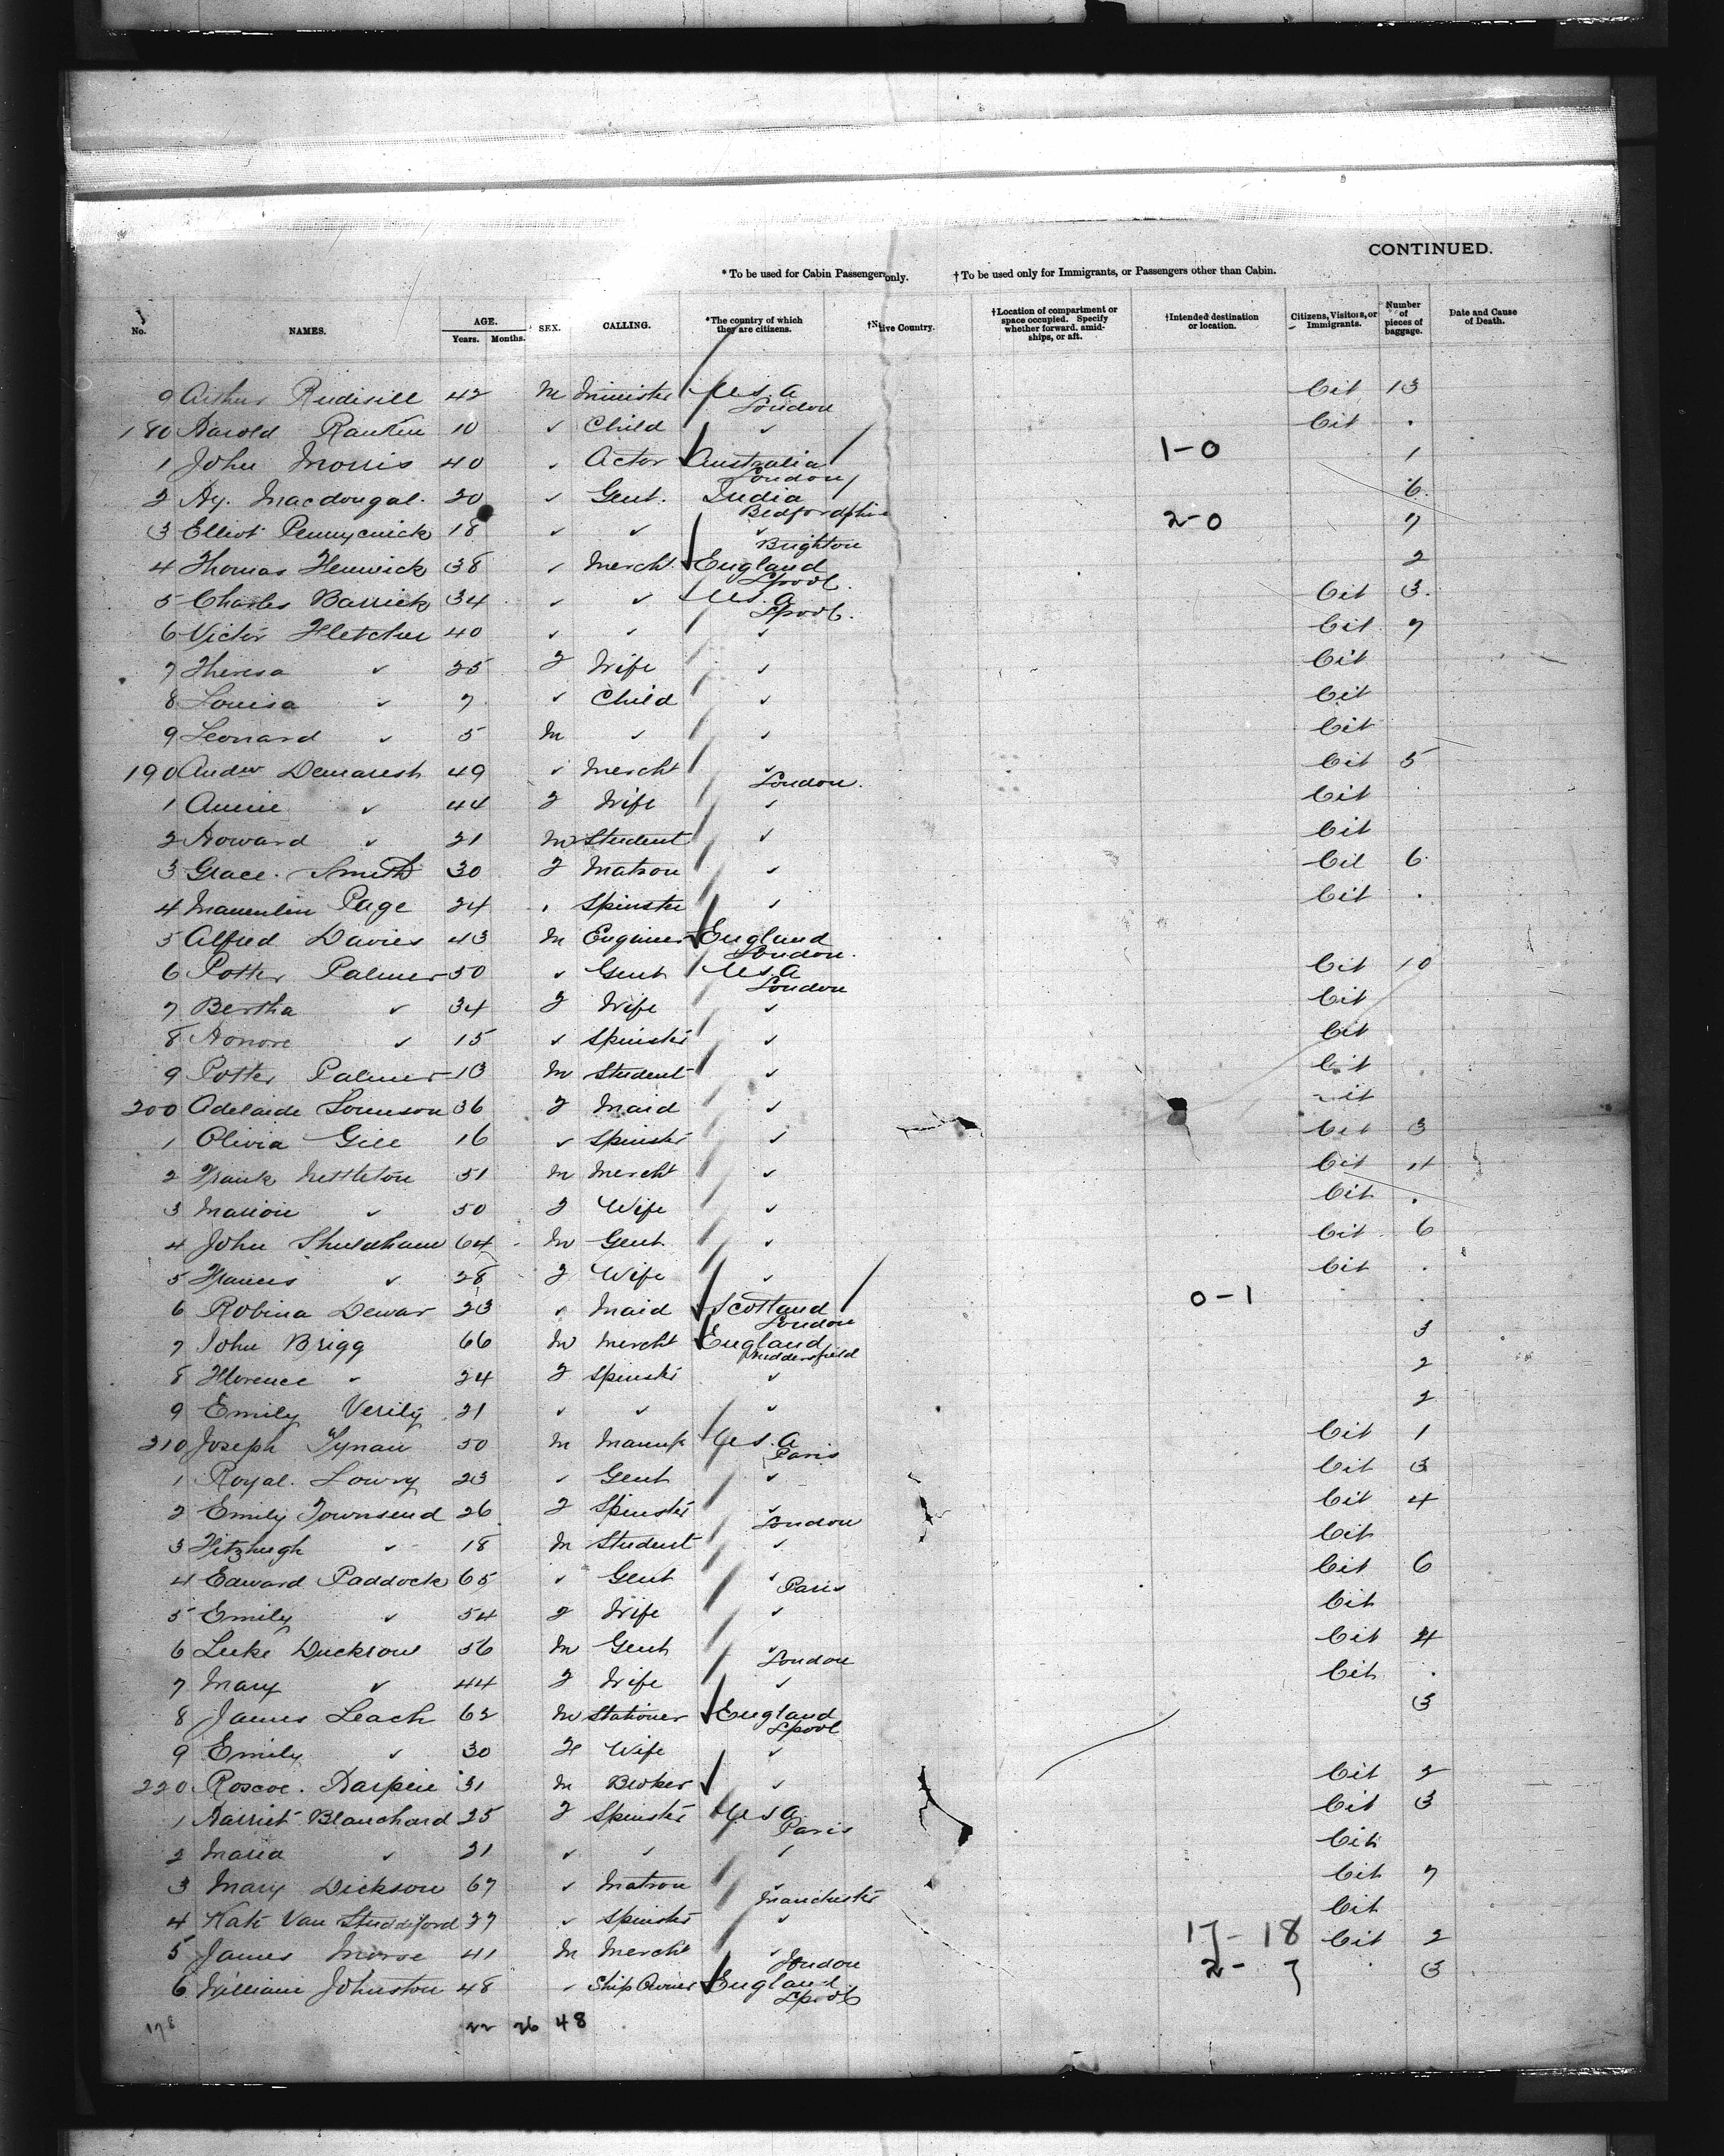 CONTINUED.
* To be used for Cabin Passengers only. † To be used only for Immigrants, or Passengers other than Cabin.
No. NAMES. AGE. Years. Months. SEX. CALLING. *The country of which they are citizens. †Native Country. †Location of compartment or space occupied. Specify whether forward, amidships, or aft. †Intended destination or location. Citizens, Visitors, or Immigrants. Number of pieces of baggage. Date and Cause of Death.
9 Arthur Rudisill 42 M Minister U.S.A London Cit 13
180 Harold Rankin 10 ✓ Child ✓ Cit .
1 John Morris 40 ✓ Actor Australia London 1-0 1
2 Hy. Macdougal. 20 ✓ Gent. India Bedfordshire 6
3 Elliot Pennycuick 18 ✓ ✓ ✓ Brighton 2-0 7
4 Thomas Fenwick 38 ✓ Mercht. England Lpool. 2
5 Charles Barrick 34 ✓ ✓ U.S.A Lpool. Cit 3.
6 Victor Fletcher 40 ✓ ✓ ✓ Cit 7
7 Theresa ✓ 25 F Wife ✓ Cit
8 Louisa ✓ 7 ✓ Child ✓ Cit
9 Leonard ✓ 5 M ✓ ✓ Cit
190 Andw Demarest 49 ✓ Mercht ✓ London. Cit 5
1 Annie ✓ 44 F Wife ✓ Cit
2 Howard ✓ 21 M Student ✓ Cit
3 Grace. Smith 30 F Matron ✓ Cit 6
4 Page 24 ✓ Spinster ✓ Cit .
5 Alfred Davies 43 M Engineer England London.
6 Potter Palmer 50 ✓ Gent U.S.A London Cit 10
7 Bertha ✓ 34 F Wife ✓ Cit
8 Honore ✓ 15 ✓ Spinster ✓ Cit
9 Potter Palmer 13 M Student ✓ Cit
200 Adelaide 36 F Maid ✓ Cit
1 Olivia Gill 16 ✓ Spinster ✓ Cit 3
2 Frank Nettleton 51 M Mercht ✓ Cit 4
3 Marion ✓ 50 F Wife ✓ Cit .
4 John Shuldham 64 M Gent. ✓ Cit 6
5 Frances ✓ 28 F Wife ✓ Cit .
6 Robina Dewar 23 ✓ Maid Scotland London 0-1
7 John Brigg 66 M Mercht England Huddersfield 3
8 Florence ✓ 24 F Spinster ✓ 2
9 Emily Verily 21 ✓ ✓ ✓ 2
210 Joseph Tynan 50 M Manufr U.S.A Paris Cit 1
1 Royal. Lowry 23 ✓ Gent ✓ Cit 3
2 Emily Townsend 26 F Spinster ✓ London Cit 4
3 Fitzhugh ✓ 18 M Student ✓ Cit
4 Edward Paddock 65 ✓ Gent ✓ Paris Cit 6
5 Emily ✓ 54 F Wife ✓ Cit
6 Luke Duckson 56 M Gent ✓ London Cit 4
7 Mary ✓ 44 F Wife ✓ Cit .
8 James Leach 62 M Stationer England Lpool 3
9 Emily ✓ 30 F Wife ✓
220 Roscoe. 31 M Broker ✓ Cit 2
1 Harriet Blanchard 25 F Spinster U.S.A Paris Cit 3
2 Maria ✓ 21 ✓ ✓ ✓ Cit
3 Mary Dickson 67 ✓ Matron ✓ Manchester Cit 7
4 Kate Van Studdiford 37 ✓ Spinster ✓ Cit
5 James 41 M Mercht ✓ London 17-18 Cit 2
6 William Johnston 48 ✓ Ship Owner England Lpool 2-7 3
178 22 26 48